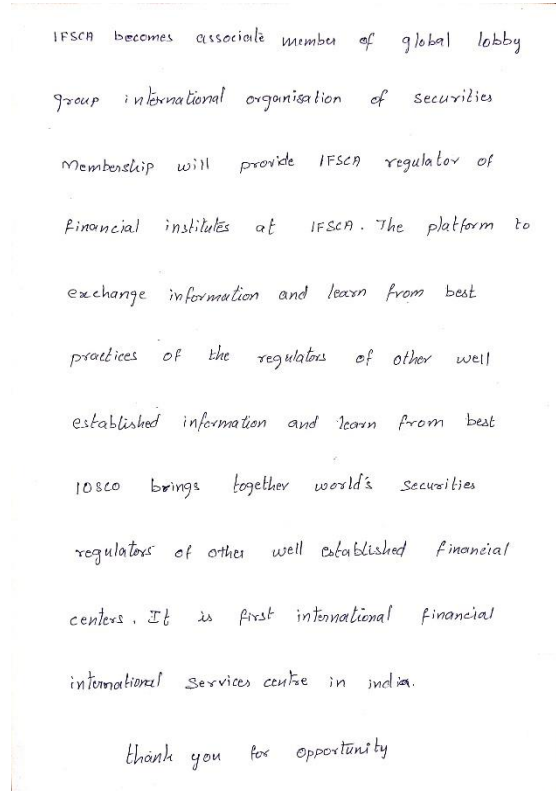 IFSCA becomes associate member of global lobby
group international organisation of securities
Membership will provide IFSCA regulator of
financial institutes at IFSCA. The platform to
exchange information and learn from best
practices of the regulators of other well
established information and learn from best
IOSCO brings together world's securities
regulators of other well established financial
centers. It is first international financial
international services centre in india.
thank you for opportunity